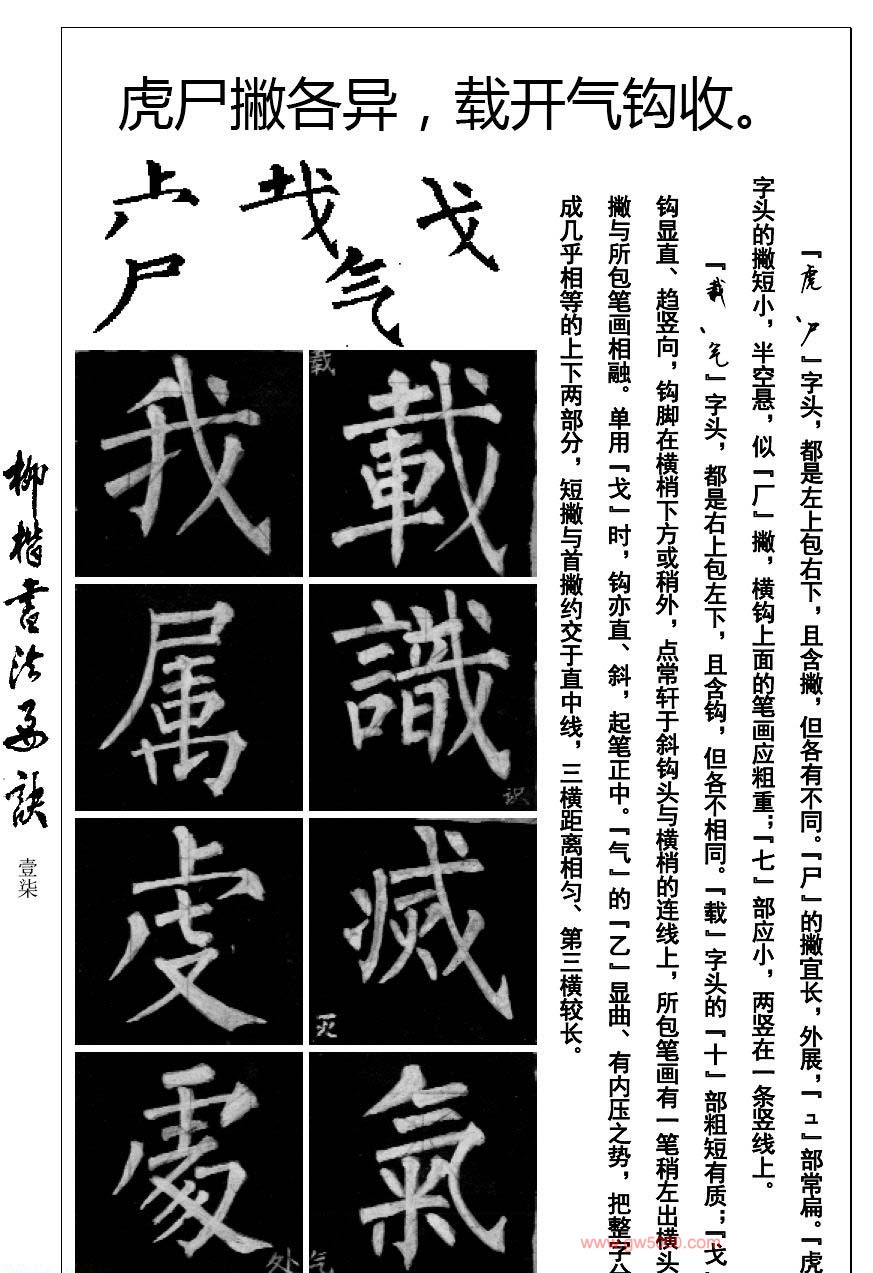 虎尸撇各异，载开气钩收。
『虎、尸』字头，都是左上包右下，且含撇，但各有不同。『尸』的撇宜长，外展，『ュ』部常扁。『虎
字头的撇短小，半空悬，似『厂』撇，横钩上面的笔画应粗重；『七』部应小，两竖在一条竖线上。
『载、气』字头，都是右上包左下，且含钩，但各不相同。『载』字头的『十』部粗短有质；『戈
钩显直、趋竖向，钩脚在横梢下方或稍外，点常轩于斜钩头与横梢的连线上，所包笔画有一笔稍左出横头
撇与所包笔画相融。单用『戈』时，钩亦直、斜，起笔正中。『气』的『乙』显曲、有内压之势，把整字分
成几乎相等的上下两部分，短撇与首撇约交于直中线，三横距离相匀、第三横较长。
戈
气
尸
载
載
我
識
识
属
滅
灭
虔
氣
气
處
处
柳楷书法要诀
壹柒
www.gw5000.com